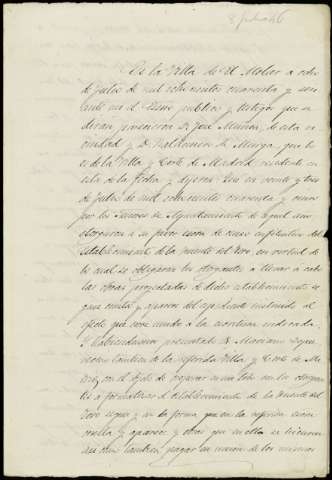 8 Julio 46
En la Villa de El Molar a ocho
de Julio de mil ochocientos cuarenta y seis
ante mi el Essno publico y testigos que se
diran parecieron D. José Muñoz de esta ve
cindad y D. Baldomero de Murga que lo
es de la Villa y Corte de Madrid residente en
esta de la fecha y dijeron: Que en veinte y tres
de Julio de mil ochocientos cuarenta y
por los Señores de Ayuntamiento de igual
otorgaron a su favor de censo enfiteutico del
establecimiento de la fuente del Toro, en virtud de
la cual se obligaron los otorgantes a llevar a cabo
las obras proyectadas a dicho establecimiento se
gun consta y aparece del espediente instruido al
efecto que corre unido a la escritura indicada.
Y habiendoseles presentado D. Mariano
vecino tambien de la referida Villa y Corte de Ma
drid, con el objeto de en los obligan
tes a el establecimiento de la fuente del
Toro segun y en la forma que en la referida escri
tura y aparece y otras que en ella se hicieron
asi como tambien pagar en union de los mismos